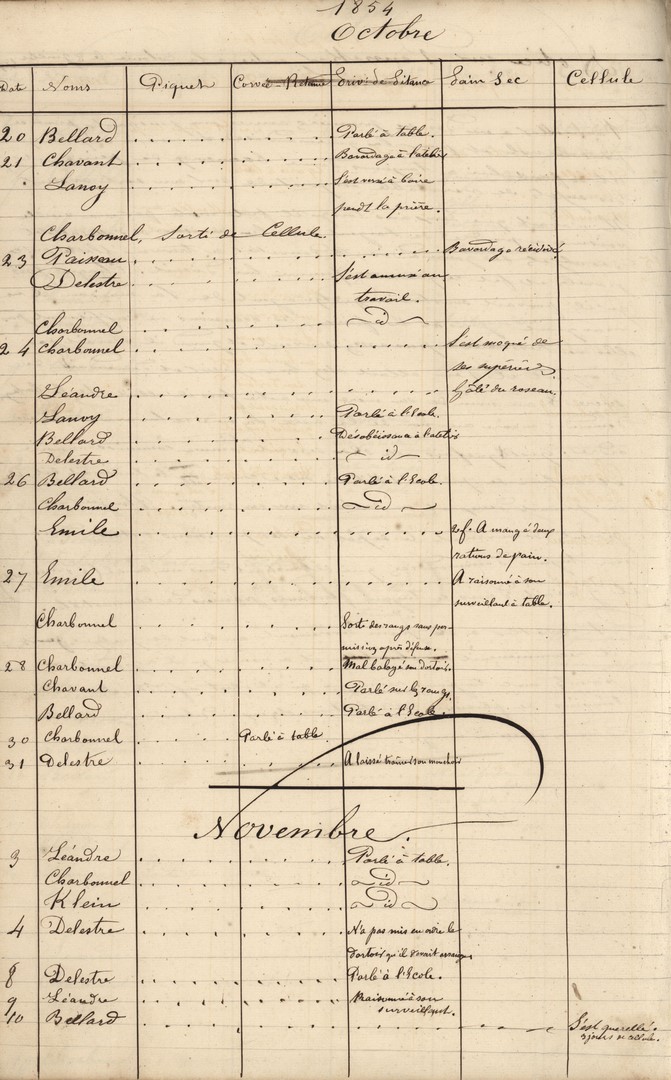 1854
Octobre
Date Noms Piquet Corvée - Retenue Privé de Pitance Pain Sec Cellule
20 Bellard Parlé à table.
21 Chavant Bavardage à l'atelier
Lanoy S'est versé à boire
pendt la prière.
Charbonnel, sorti de Cellule.
23 Paisseau Bavardage récidivé
Delestre S'est amusé au
travail.
Charbonnel id
24 Charbonnel S'est moqué de
ses supérieurs
Léandre Gâté du roseau.
Lanoy Parlé à l'Ecole.
Bellard Désobéissance à l'atelier
Delestre id
26 Bellard Parlé à l'Ecole.
Charbonnel id
Emile A mangé deux
rations de pain.
27 Emile A raisonné à son
surveillant à table.
Charbonnel Sorti des rangs sans per-
mission après défense.
28 Charbonnel Mal balayé son dortoir.
Chavant Parlé sur les rangs.
Bellard Parlé à l'Ecole.
30 Charbonnel Parlé à table
31 Delestre A laissé traîner son mouchoir
Novembre.
3 Léandre Parlé à table.
Charbonnel id
Klein id
4 Delestre N'a pas mis en ordre le
dortoir qu'il devait arranger
8 Delestre Parlé à l'Ecole.
9 Léandre Raisonné à son
surveillant.
10 Bellard S'est querellé.
3 jours de cellule.